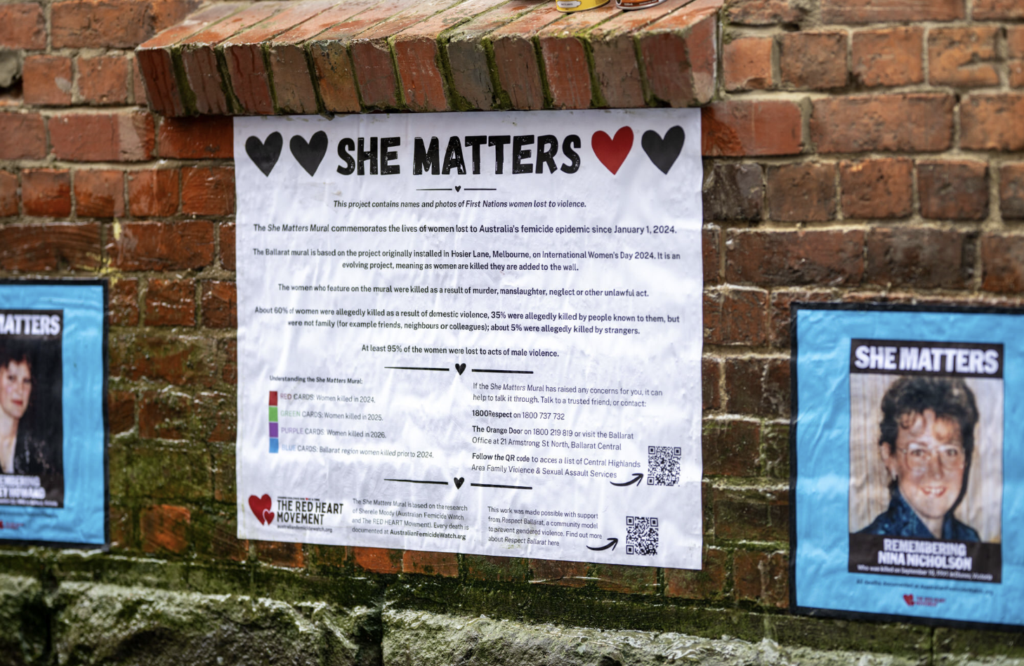 SHE MATTERS
This project contains names and photos of First Nations women lost to violence.
The She Matters Mural commemorates the lives of women lost to Australia's femicide epidemic since January 1, 2024.
The Ballarat mural is based on the project originally installed in Hosier Lane, Melbourne, on International Women's Day 2024. It is an
evolving project, meaning as women are killed they are added to the wall.
The women who feature on the mural were killed as a result of murder, manslaughter, neglect or other unlawful act.
About 60% of women were allegedly killed as a result of domestic violence, 35% were allegedly killed by people known to them, but
were not family (for example friends, neighbours or colleagues); about 5% were allegedly killed by strangers.
At least 95% of the women were lost to acts of male violence.
Understanding the She Matters Mural.
RED CARDS: Women killed in 2024.
GREEN CARDS: Women killed in 2025.
PURPLE CARDS: Women killed in 2026.
BLUE CARDS: Ballarat region women killed prior to 2024.
If the She Matters Mural has raised any concerns for you, it can
help to talk it through. Talk to a trusted friend, or contact:
1800Respect on 1800 737 732
The Orange Door on 1800 219 819 or visit the Ballarat
Office at 21 Armstrong St North, Ballarat Central
Follow the QR code to acces a list of Central Highlands
Area Family Violence & Sexual Assault Services
THE RED HEART
MOVEMENT
The She Matters Mural is based on the research
of Sherele Moody (Australian Femicide Watch
and The RED HEART Movement). Every death is
documented at AustralianFemicideWatch.org
This work was made possible with support
from Respect Ballarat, a community model
to prevent gendered violence. Find out more
about Respect Ballarat here
MATTERS
SHE MATTERS
REMEMBERING
NINA NICHOLSON
THE RED HEART
MOVEMENT